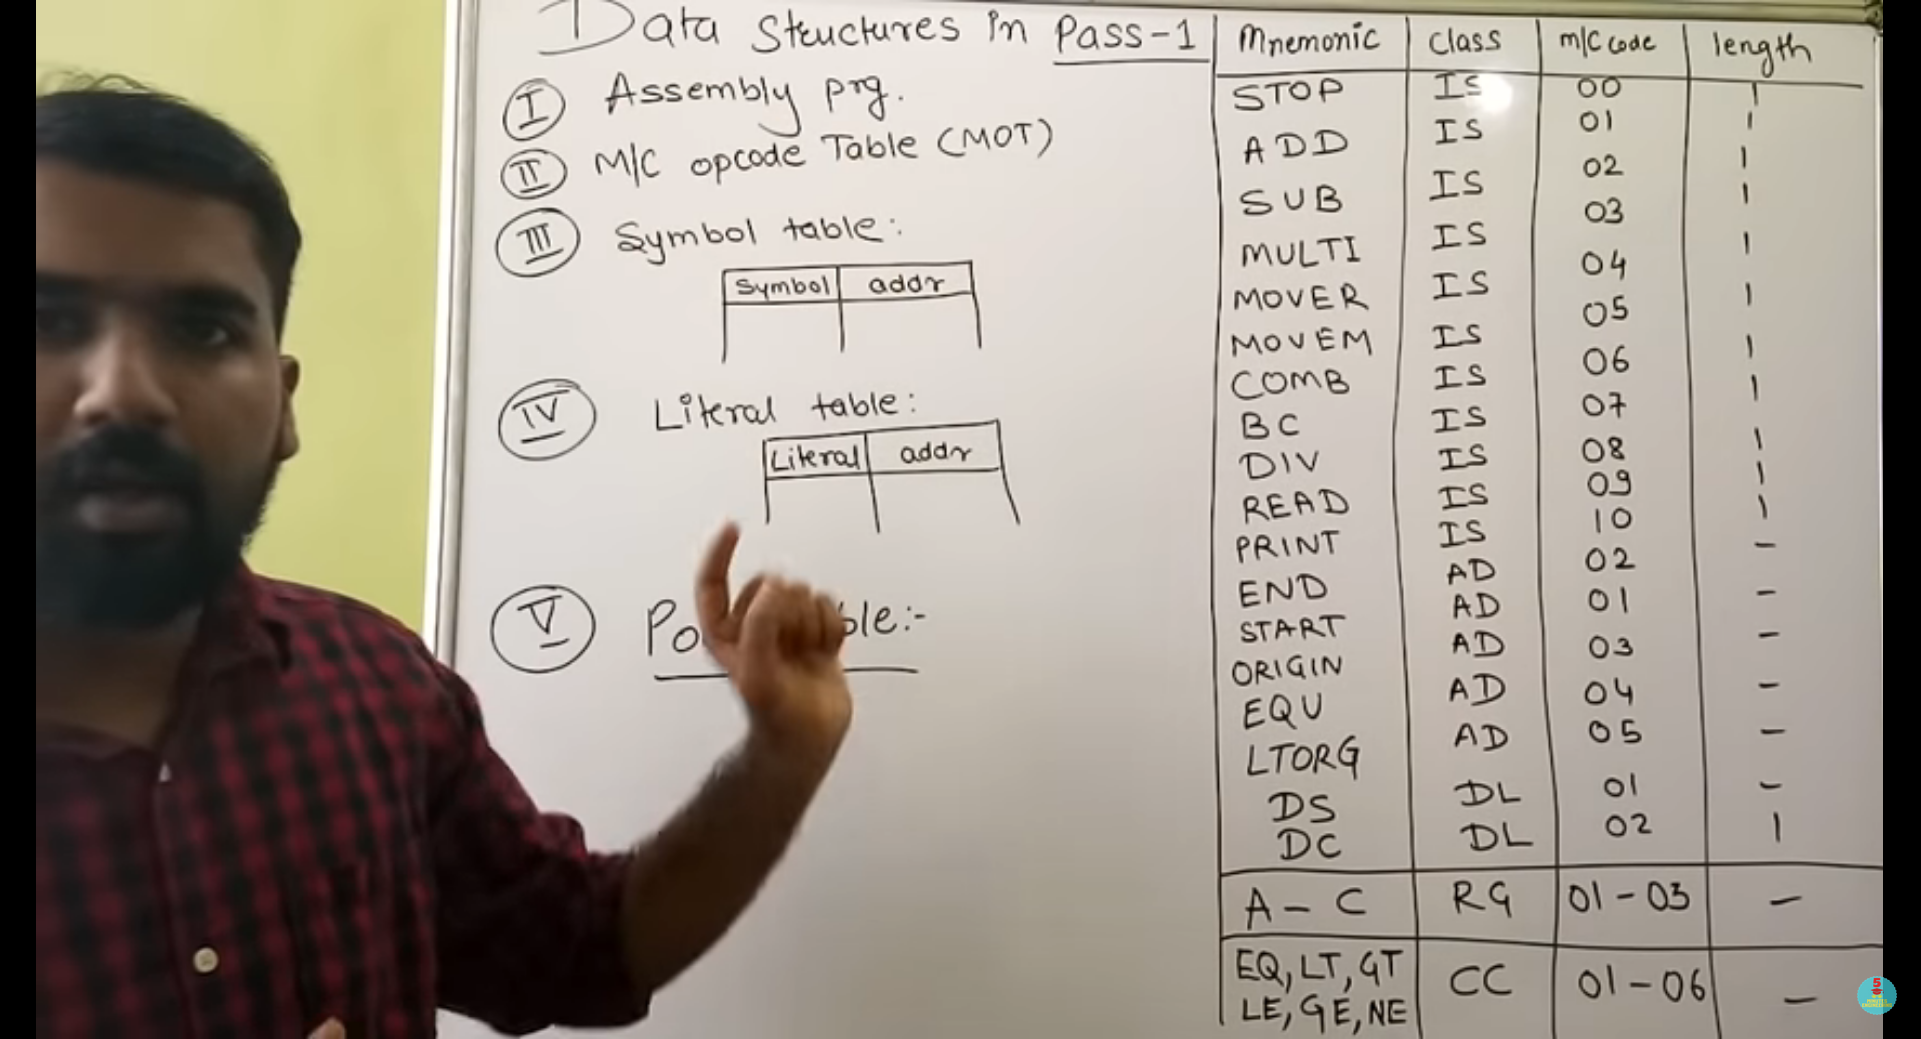 Data Structures in Pass-1
I Assembly prg.
II M/C opcode Table (MOT)
III Symbol table:
Symbol addr
IV Literal table:
Literal addr
V
Mnemonic Class m/c code length
STOP IS 00 1
ADD IS 01 1
SUB IS 02 1
MULTI IS 03 1
MOVER IS 04 1
MOVEM IS 05 1
COMB IS 06 1
BC IS 07 1
DIV IS 08 1
READ IS 09 1
PRINT IS 10 1
END AD 02 -
START AD 01 -
ORIGIN AD 03 -
EQU AD 04 -
LTORG AD 05 -
DS DL 01 -
DC DL 02 1
A - C RG 01-03 -
EQ, LT, GT
LE, GE, NE CC 01-06 -
5